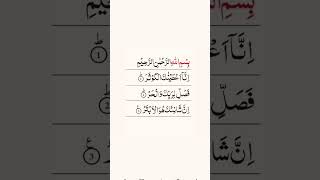 بِسْمِ اللهِ الرَّحْمٰنِ الرَّحِيْمِ
اِنَّاۤ اَعْطَيْنٰكَ الْكَوْثَرَ ①
فَصَلِّ لِرَبِّكَ وَانْحَرْ ②
اِنَّ شَانِئَكَ هُوَ الْاَبْتَرُ ③